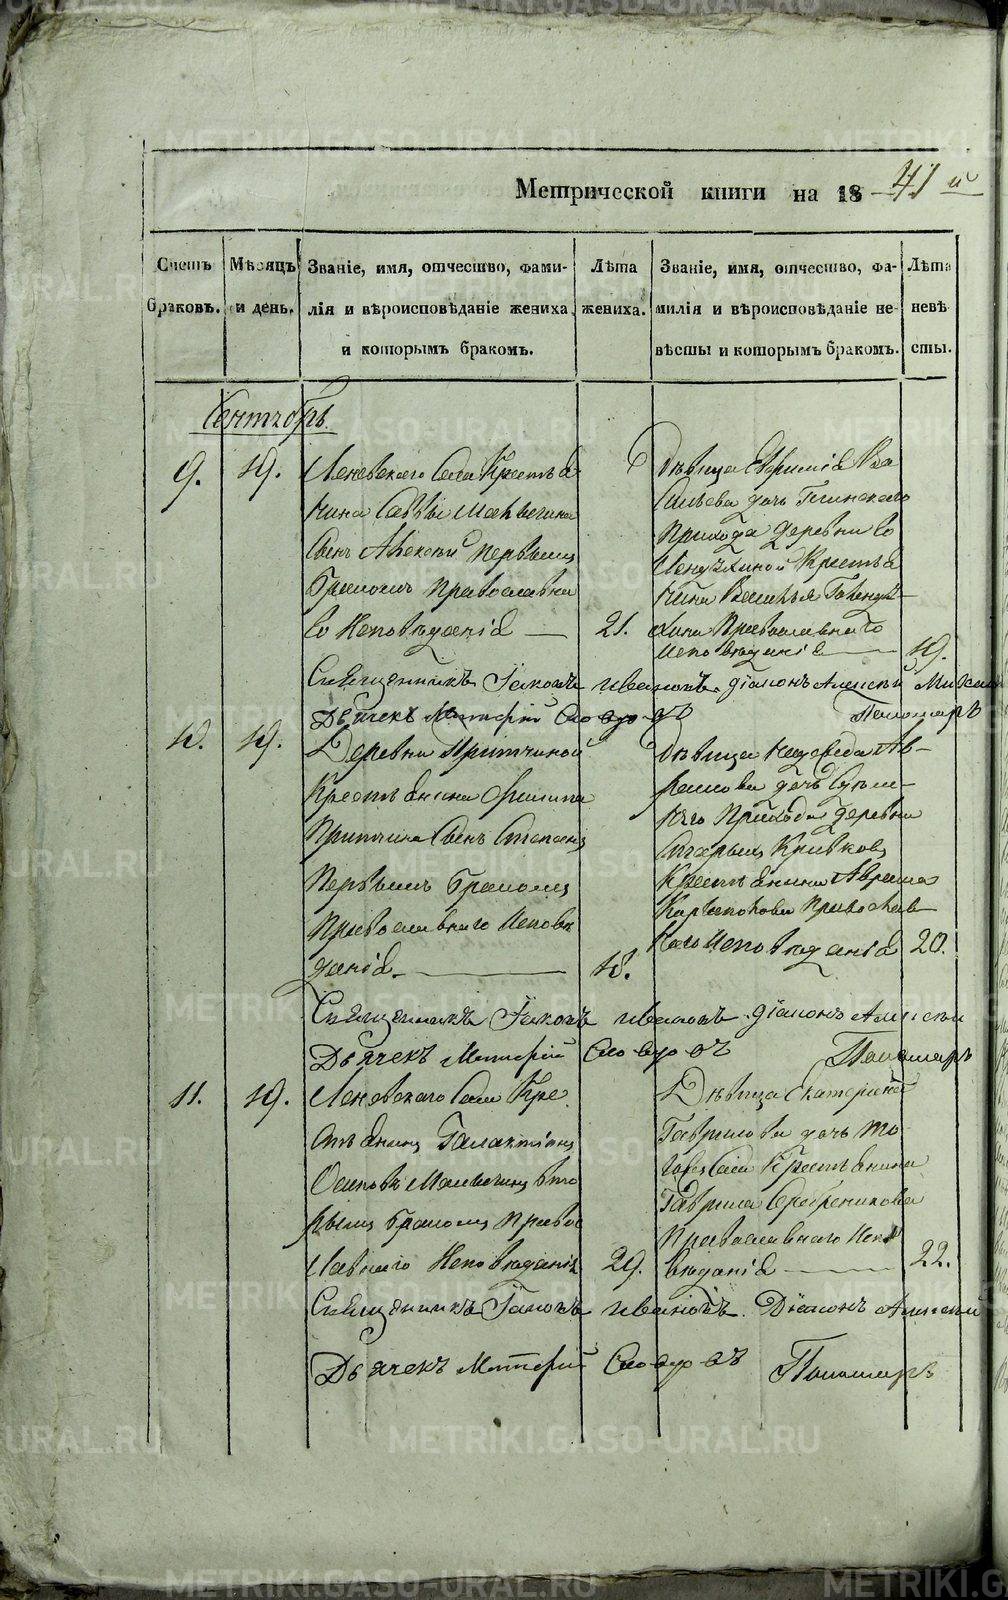 Метрической книги на 1841й
Счетъ браковъ.
Мѣсяцъ и день.
Званіе, имя, отчество, фами-
лія и вѣроисповѣданіе жениха,
и которымъ бракомъ.
Лѣта
жениха.
Званіе, имя, отчество, фа-
милія и вѣроисповѣданіе не-
вѣсты и которымъ бракомъ.
Лѣта
невѣ
сты.
Сентябрь.
9.
19.
Леневскаго Села Крестья
нина Саввы Малыгина
Сынъ Алексѣй первымъ
Бракомъ Православна
го Исповѣданія
21.
Дѣвица Ефимія Ва
сильева дочь
Прихода деревни
Крестья
нина Василья
Православнаго
исповѣданія
19.
Священникъ Іаковъ Ивановъ діаконъ Алексѣй
Дьячекъ Пономарь
10.
19.
Деревни Притчиной
Крестьянина Филипа
Притчина Сынъ Степанъ
Первымъ Бракомъ
Православнаго Исповѣ
данія
18.
Дѣвица Ав-
рамова дочь
Прихода деревни
Старыхъ Кривковъ
Крестьянина Аврама
Православ-
наго Исповѣданія
20.
Священникъ Іаковъ Ивановъ діаконъ Алексѣй
Дьячекъ Пономарь
11.
19.
Леневскаго Села Кре
стьянинъ Галактіонъ
Осиповъ Малыгинъ вто
рымъ Бракомъ Правос
лавнаго Исповѣданія
29.
Дѣвица Екатерина
Гаврилова дочь то
гожъ Села Крестьянина
Гаврила Серебреникова
Православнаго Испо
вѣданія
22.
Священникъ Іаковъ Ивановъ Діаконъ Алексѣй
Дьячекъ Пономарь
METRIKI.GASO-URAL.RU